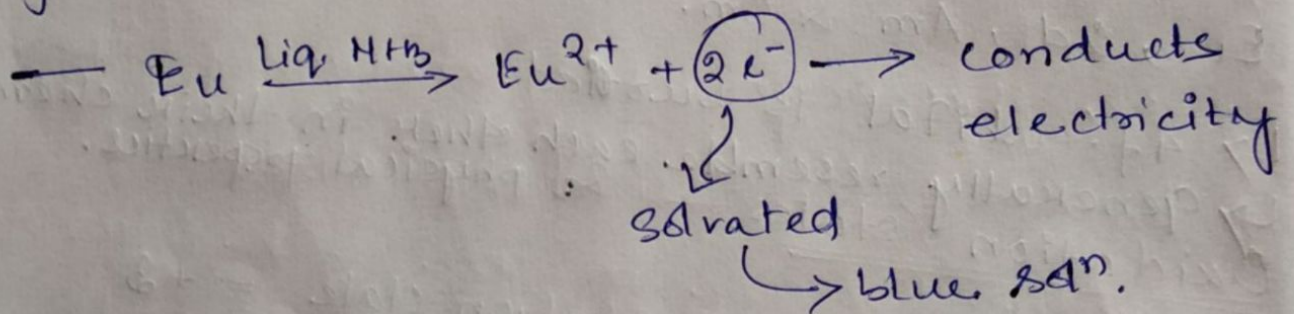 — Eu Liq. NH3 → Eu²⁺ + 2e⁻ → conducts
electricity
solvated
→ blue. solⁿ.